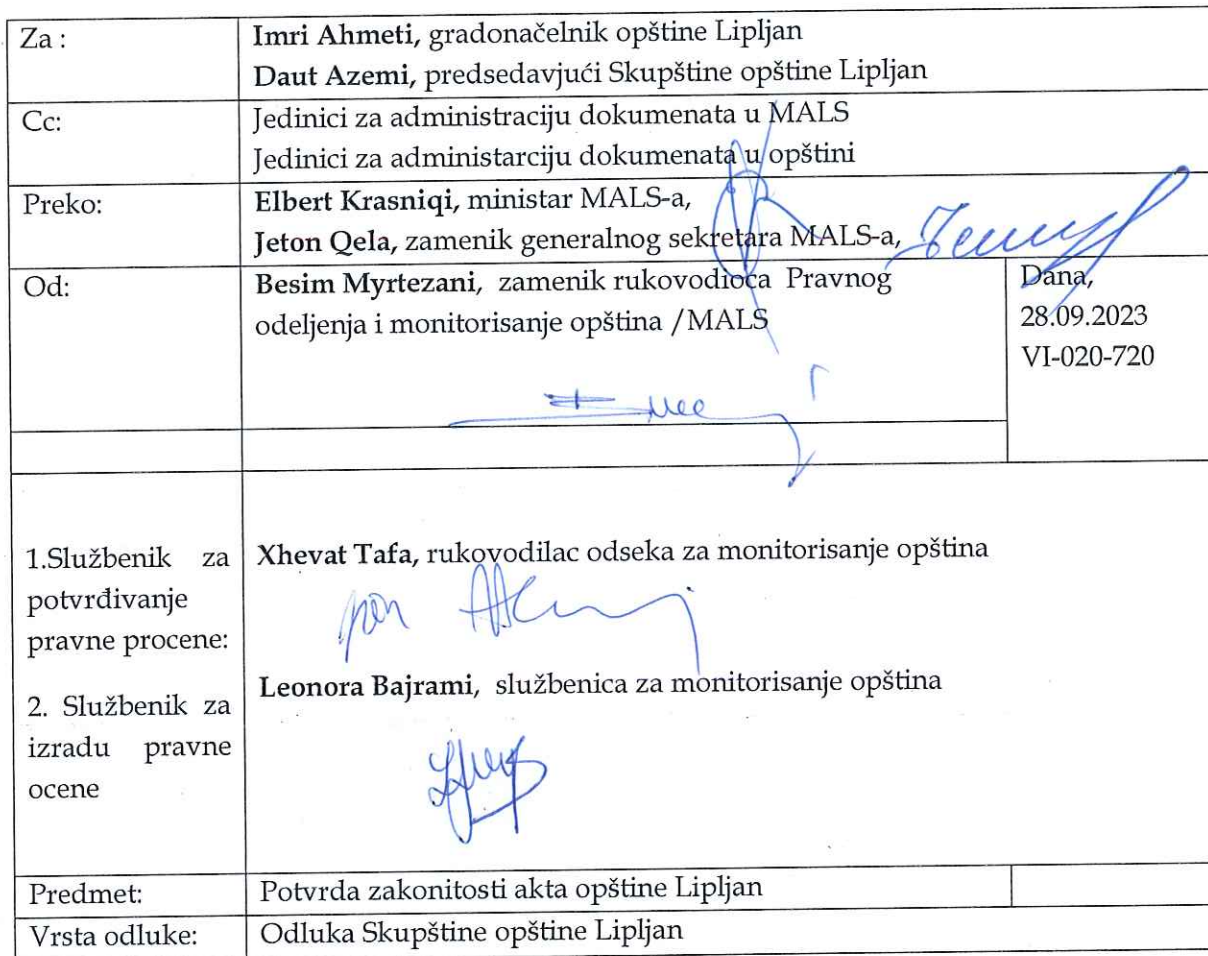 Za :
Imri Ahmeti, gradonačelnik opštine Lipljan
Daut Azemi, predsedavjući Skupštine opštine Lipljan
Cc:
Jedinici za administraciju dokumenata u MALS
Jedinici za administarciju dokumenata u opštini
Preko:
Elbert Krasniqi, ministar MALS-a,
Jeton Qela, zamenik generalnog sekretara MALS-a,
Od:
Besim Myrtezani, zamenik rukovodioca Pravnog
odeljenja i monitorisanje opština /MALS
Dana,
28.09.2023
VI-020-720
1.Službenik za
potvrđivanje
pravne procene:
Xhevat Tafa, rukovodilac odseka za monitorisanje opština
2. Službenik za
izradu pravne
ocene
Leonora Bajrami, službenica za monitorisanje opština
Predmet:
Potvrda zakonitosti akta opštine Lipljan
Vrsta odluke:
Odluka Skupštine opštine Lipljan